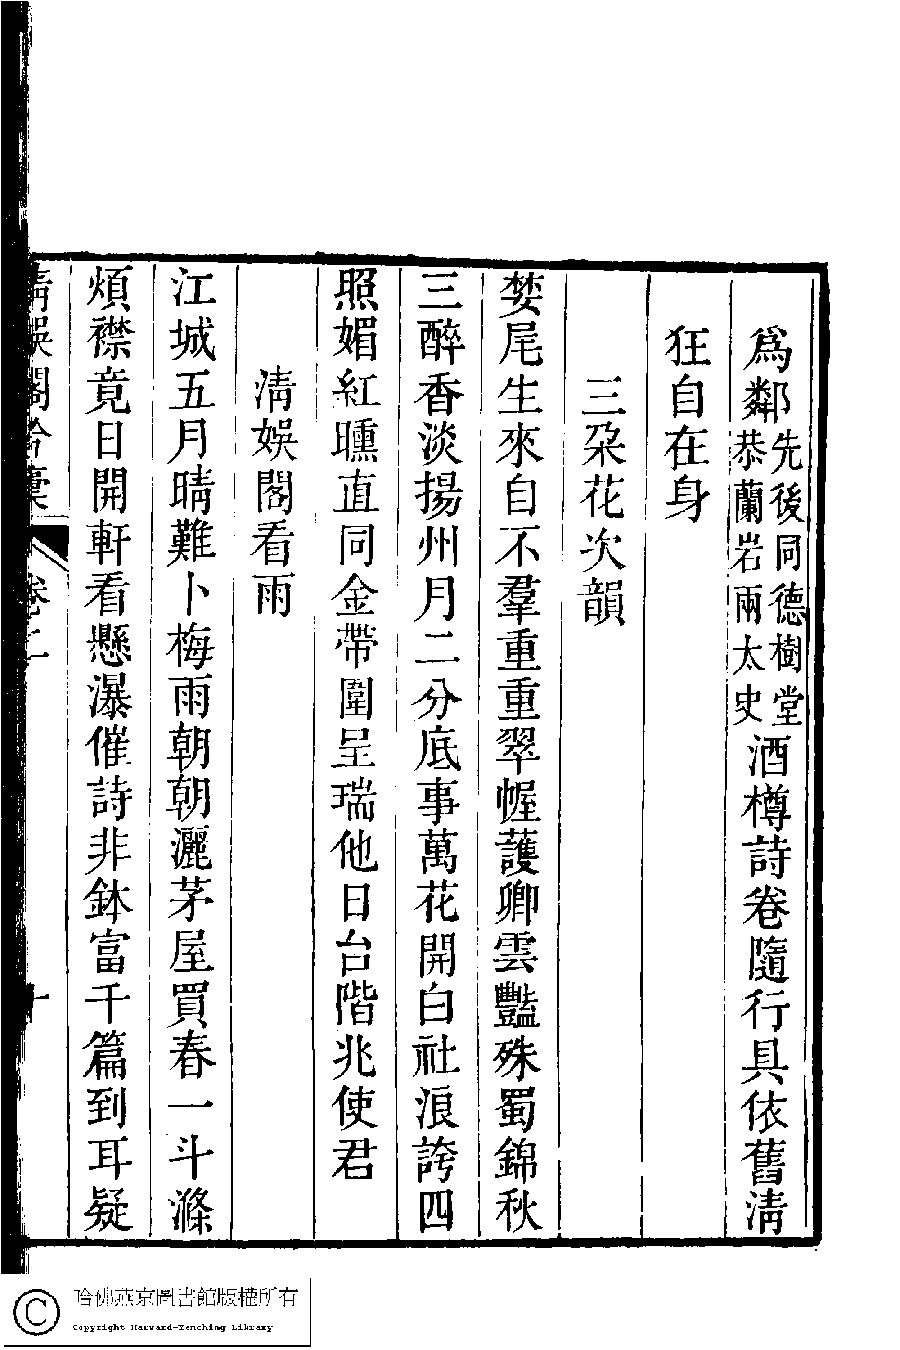 爲鄰先後同德樹堂恭蘭岩兩太史酒樽詩卷隨行具依舊淸
狂自在身
三朶花次韻
婪尾生來自不羣重重翠幄護卿雲豔殊蜀錦秋
三醉香淡揚州月二分底事萬花開白社浪誇四
照媚紅曛直同金帶圍呈瑞他日台階兆使君
淸娛閣看雨
江城五月晴難卜梅雨朝朝灑茅屋買春一斗滌
煩襟竟日開軒看懸瀑催詩非鉢富千篇到耳疑
淸娛閣吟稾 卷二 十
哈佛燕京圖書館版權所有
Copyright Harvard-Yenching Library